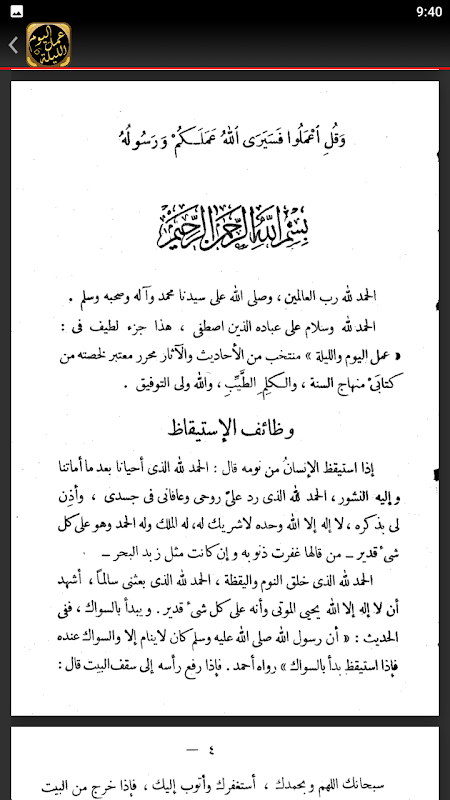 9:40
عمل اليوم
والليلة
وَقُلِ ٱعْمَلُوا فَسَيَرَى ٱللهُ عَمَلَكُمْ وَرَسُولُهُ
بِسْمِ اللهِ الرَّحْمَنِ الرَّحِيمِ
الحمد لله رب العالمين، وصلى الله على سيدنا محمد وآله وصحبه وسلم .
الحمد لله وسلام على عباده الذين اصطفى ، هذا جزء لطيف فى :
« عمل اليوم والليلة » منتخب من الأحاديث والآثار محرر معتبر لخصته من
كتابَىْ منهاج السنة ، والكلِمِ الطَّيِّبِ ، والله ولى التوفيق .
وظائف الإستيقاظ
إذا استيقظ الإنسانُ من نومه قال : الحمد لله الذى أحيانا بعد ما أماتنا
وإليه النشور ، الحمد لله الذى رد علىّ روحى وعافانى فى جسدى ، وأذِن
لى بذكره ، لا إله إلا الله وحده لاشريك له، له الملك وله الحمد وهو على كل
شىء قدير ــ من قالها غفرت ذنوبه وإن كانت مثل زبد البحر ــ
الحمد لله الذى خلق النوم واليقظة ، الحمد لله الذى بعثنى سالماً ، أشهد
أن لا إله إلا الله يحيى الموتى وأنه على كل شىء قدير . ويبدأ بالسواك ، ففى
الحديث : « أن رسول الله صلى الله عليه وسلم كان لاينام إلا والسواك عنده
فإذا استيقظ بدأ بالسواك » رواه أحمد . فإذا رفع رأسه إلى سقف البيت قال :
٤ —
سبحانك اللهم وبحمدك ، أستغفرك وأتوب إليك ، فإذا خرج من البيت